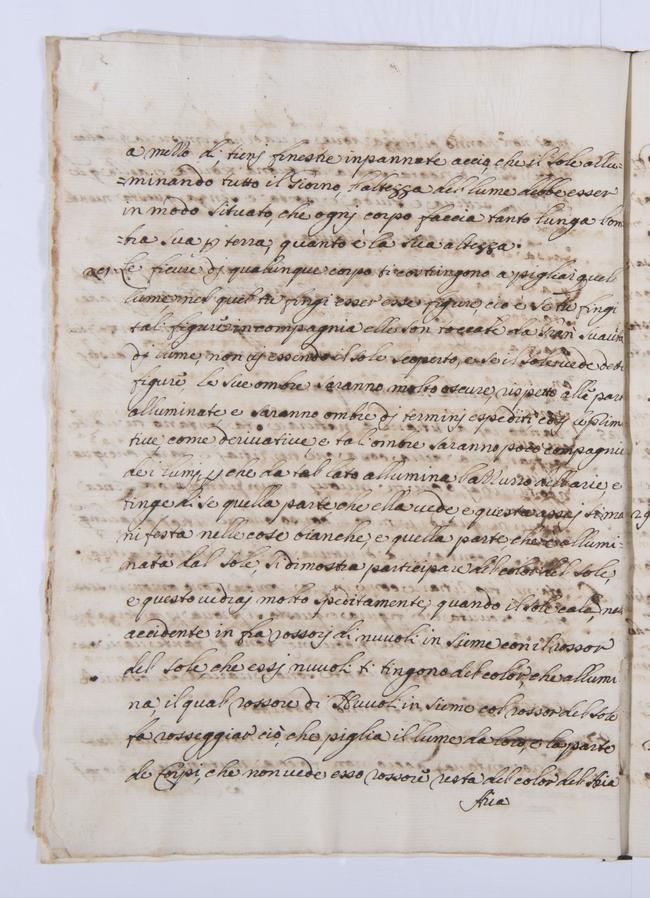 a mello di tienj finestre inpannate acciò che il sole allu=
=minando tutto il Giorno, l'altezza del lume debbe esser
in modo situato, che ogni corpo faccia tanto lunga l'om
=bra sua p terra, quanto è la sua altezza.
Le figure dj qualunque corpo ti costringono a pigliar quel
lume, nel quel tu fingi esser esse figure, cio e se tu fingi
tali figure in compagnia elle son toccate da gran suavità
dj lume, non uj essendo il sole scoperto, e se il sole uede dette
figure le sue ombre saranno molto oscure, rispetto alle parti
alluminate e saranno ombre dj terminj espediti cosj
tiue come deriuatiue, e tal ombre saranno poco compagnie
de i lumj, che da tal lato allumina l'azzurro dell'arie, e
tinge di se quella parte, che ella uede, e questo assaj si ma
nifesta nelle cose bianche, e quella parte che è allumi=
nata dal sole, si dimostra participare del color del sole,
e questo uedraj molto speditamente, quando il sole cala, nel
accidente in fra rossorj di nuuoli in sieme con il rossor
del sole, che essj nuuoli ti tingono del color, che allumi
na il qual rossore di Nuuoli in sieme col rossor del sole
fa rosseggiar ciò, che piglia il lume da loro, e la parte
de Corpi, che non uede esso rossore resta del color del Aria
Aria